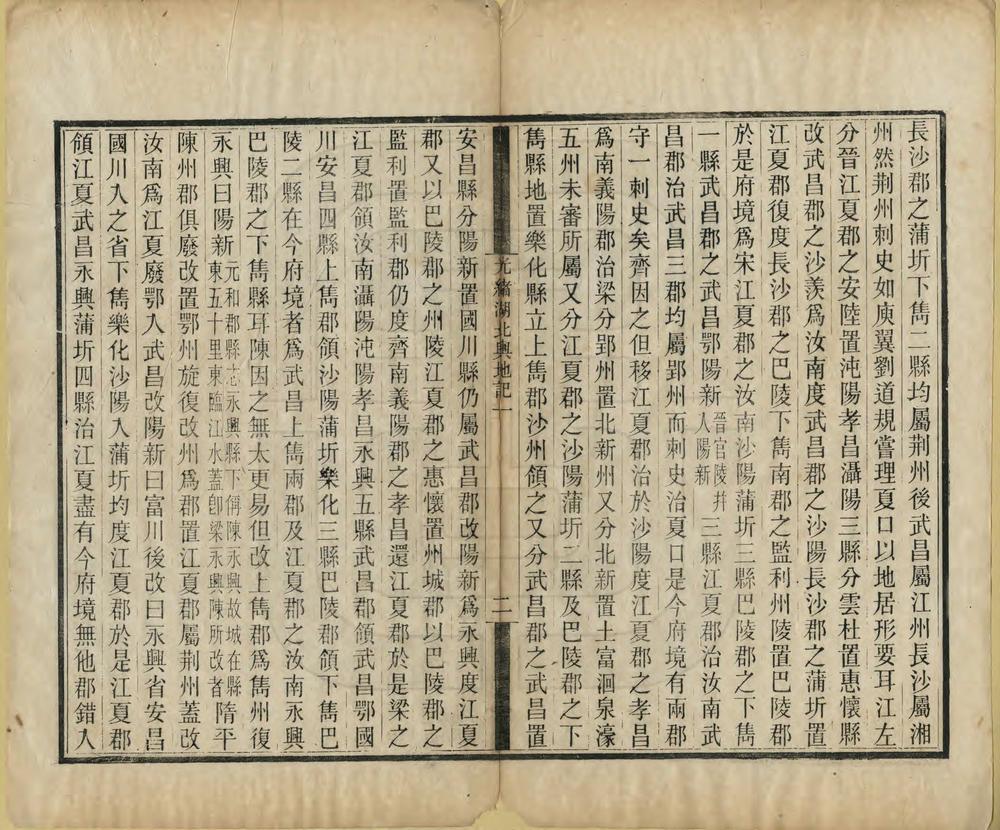 長沙郡之蒲圻下雋二縣均屬荆州後武昌屬江州長沙屬湘
州然荆州刺史如庾翼劉道規嘗理夏口以地居形要耳江左
分晉江夏郡之安陸置沌陽孝昌灄陽三縣分雲杜置惠懷縣
改武昌郡之沙羡爲汝南度武昌郡之沙陽長沙郡之蒲圻置
江夏郡復度長沙郡之巴陵下雋南郡之監利州陵置巴陵郡
於是府境爲宋江夏郡之汝南沙陽蒲圻三縣巴陵郡之下雋
一縣武昌郡之武昌鄂陽新晉官陵并入陽新三縣江夏郡治汝南武
昌郡治武昌三郡均屬郢州而刺史治夏口是今府境有兩郡
守一刺史矣齊因之但移江夏郡治於沙陽度江夏郡之孝昌
爲南義陽郡治梁分郢州置北新州又分北新置土富洄泉濠
五州未審所屬又分江夏郡之沙陽蒲圻二縣及巴陵郡之下
雋縣地置樂化縣立上雋郡沙州領之又分武昌郡之武昌置
光緖湖北輿地記一
二
安昌縣分陽新置國川縣仍屬武昌郡改陽新爲永興度江夏
郡又以巴陵郡之州陵江夏郡之惠懷置州城郡以巴陵郡之
監利置監利郡仍度齊南義陽郡之孝昌還江夏郡於是梁之
江夏郡領汝南灄陽沌陽孝昌永興五縣武昌郡領武昌鄂國
川安昌四縣上雋郡領沙陽蒲圻樂化三縣巴陵郡領下雋巴
陵二縣在今府境者爲武昌上雋兩郡及江夏郡之汝南永興
巴陵郡之下雋縣耳陳因之無太更易但改上雋郡爲雋州復
永興曰陽新元和郡縣志永興縣下偁陳永興故城在縣東五十里東臨江水蓋卽梁永興陳所改者隋平
陳州郡俱廢改置鄂州旋復改州爲郡置江夏郡屬荆州蓋改
汝南爲江夏廢鄂入武昌改陽新曰富川後改曰永興省安昌
國川入之省下雋樂化沙陽入蒲圻均度江夏郡於是江夏郡
領江夏武昌永興蒲圻四縣治江夏盡有今府境無他郡錯入